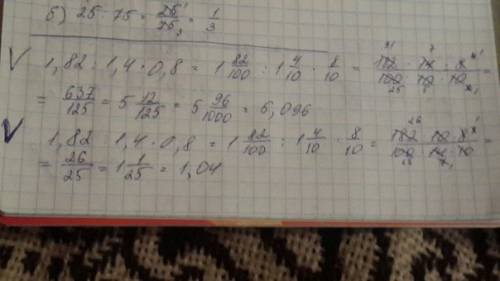 б) 25 : 75 = 25/75 = 1/3
1,82 : 1,4 · 0,8 = 1 82/100 : 1 4/10 · 8/10 = 182 · 14 · 8 / 100 · 10 · 10 =
= 637/125 = 5 12/125 = 5 96/1000 = 5,096
1,82 : 1,4 · 0,8 = 1 82/100 : 1 4/10 · 8/10 = 182 · 10 · 8 / 100 · 14 · 10 =
= 26/25 = 1 1/25 = 1,04